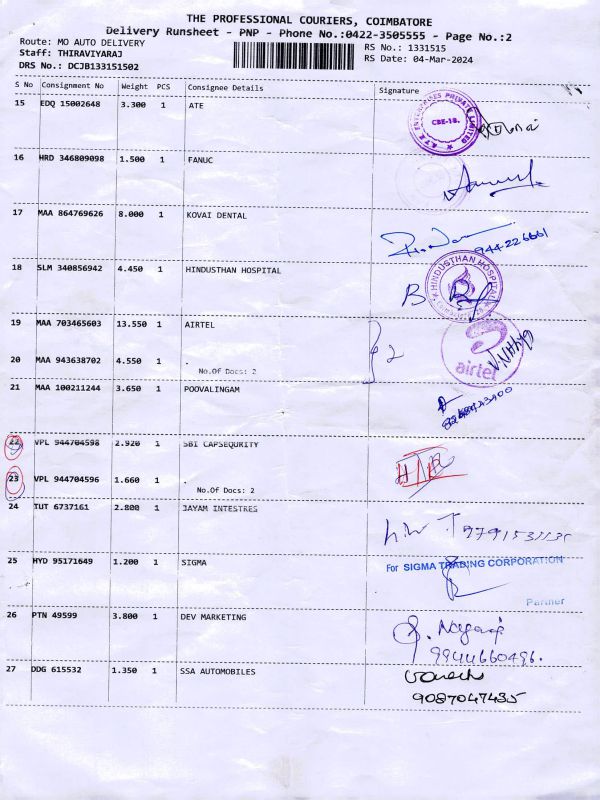 THE PROFESSIONAL COURIERS, COIMBATORE
Delivery Runsheet - PNP - Phone No.:0422-3505555 - Page No.:2
Route: MO AUTO DELIVERY
RS No.: 1331515
Staff: THIRAVIYARAJ
RS Date: 04-Mar-2024
DRS No.: DCJB133151502
S No Consignment No Weight PCS Consignee Details Signature
15 EDQ 15002648 3.300 1 ATE
A.T.E. ENTERPRISES PRIVATE LIMITED
CBE-18.
16 HRD 346809098 1.500 1 FANUC
17 MAA 864769626 8.000 1 KOVAI DENTAL
944-226661
18 SLM 340856942 4.450 1 HINDUSTHAN HOSPITAL
HINDUSTHAN HOSPITAL
B
19 MAA 703465603 13.550 1 AIRTEL
2
airtel
20 MAA 943638702 4.550 1 .
No.Of Docs: 2
21 MAA 100211244 3.650 1 POOVALINGAM
22 VPL 944704598 2.920 1 SBI CAPSEQURITY
23 VPL 944704596 1.660 1 .
No.Of Docs: 2
24 TUT 6737161 2.800 1 JAYAM INTESTRES
25 HYD 95171649 1.200 1 SIGMA
For SIGMA TRADING CORPORATION
Partner
26 PTN 49599 3.800 1 DEV MARKETING
9944660496.
27 DDG 615532 1.350 1 SSA AUTOMOBILES
9087047435